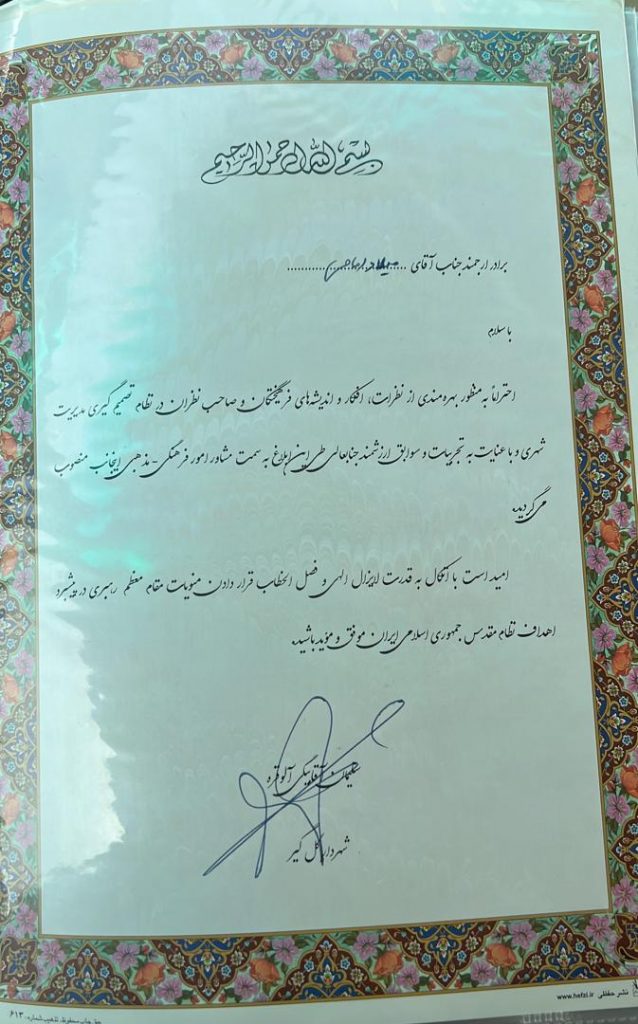 بسم الله الرحمن الرحیم
برادر ارجمند جناب آقای ......................
باسلام
احتراماً به منظور بهره‌مندی از نظرات، افکار و اندیشه‌های فرهیختگان و صاحب نظران در نظام تصمیم گیری مدیریت
شهری و با عنایت به تجربیات و سوابق ارزشمند جنابعالی طی این ابلاغ به سمت مشاور امور فرهنگی - مذهبی اینجانب منصوب
می گردید.
امید است با اتکال به قدرت لایزال الهی و فصل الخطاب قرار دادن منویات مقام معظم رهبری در پیشبرد
اهداف نظام مقدس جمهوری اسلامی ایران موفق و مؤید باشید.
سلیمان
شهردار گل گیر
نشر حفظی www.hefzi.ir
حق چاپ محفوظ، تذهیب شماره: ۶۱۳